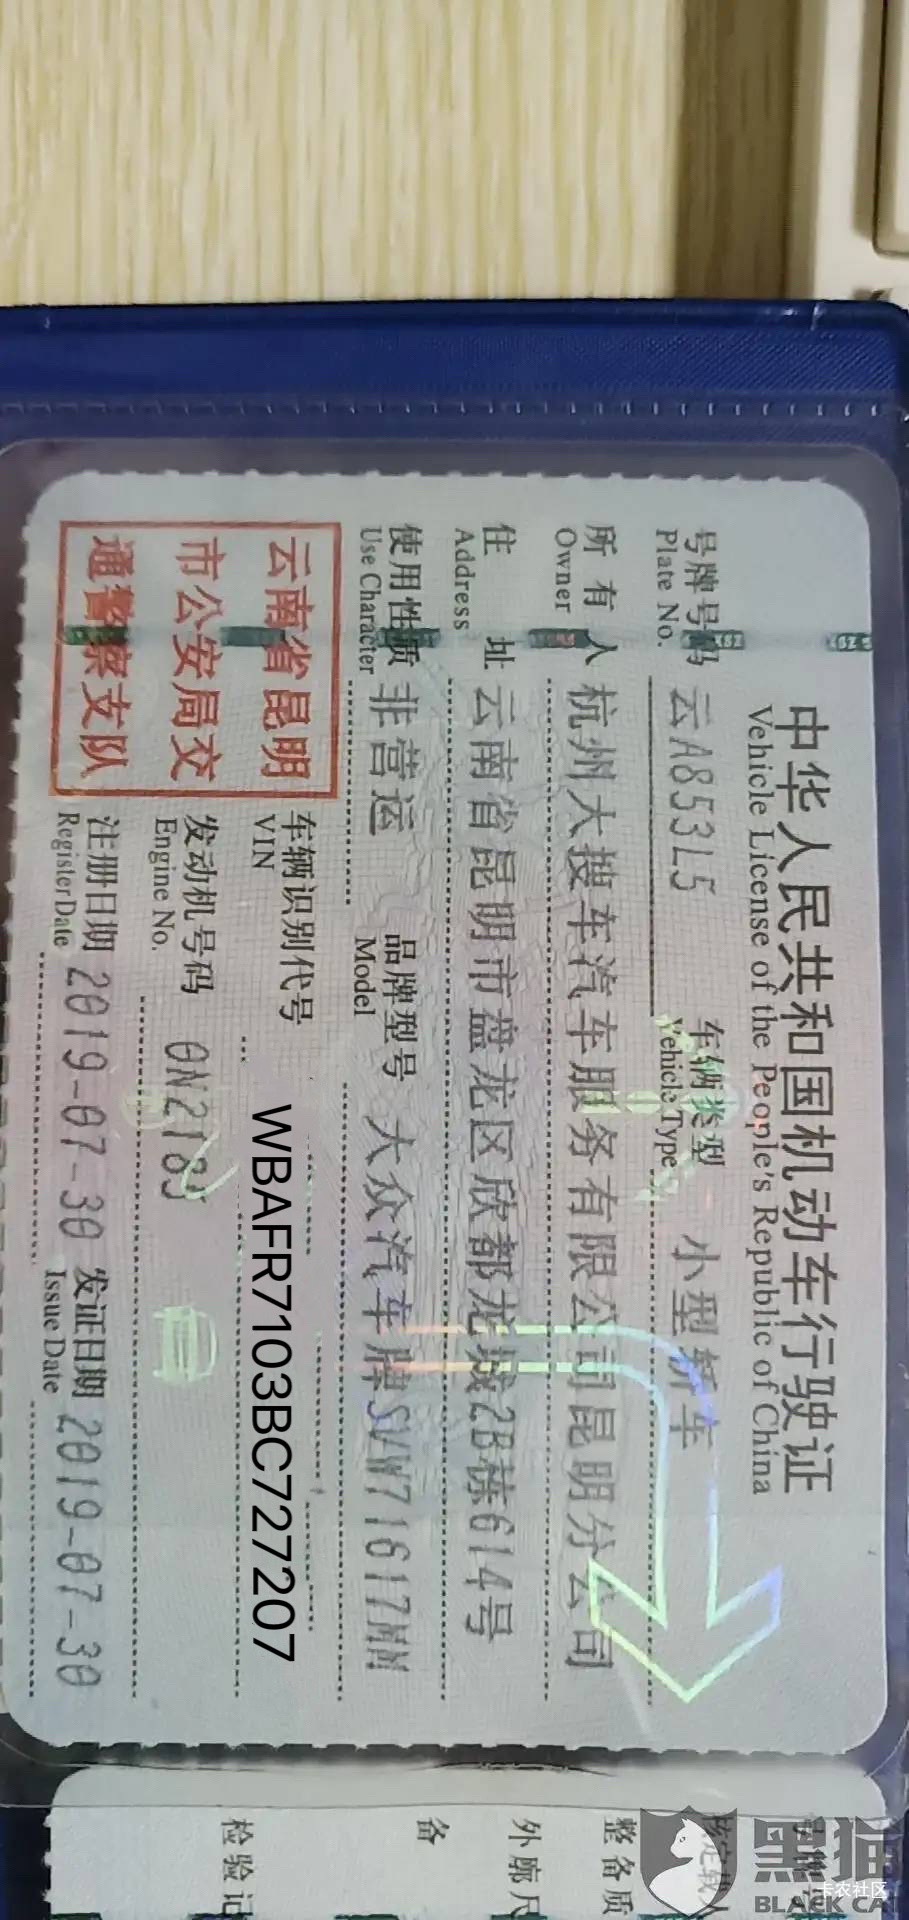 中华人民共和国机动车行驶证
Vehicle License of the People's Republic of China
号牌号码 云A853L5 车辆类型 小型轿车
Plate No. Vehicle Type
所有人 杭州大搜车汽车服务有限公司昆明分公司
Owner
住址 云南省昆明市盘龙区欣都龙城2B栋614号
Address
使用性质 非营运 品牌型号 大众汽车牌SVW71617MM
Use Character Model
云南省昆明
市公安局交
通警察支队
车辆识别代号 WBAFR7103BC727207
VIN
发动机号码
Engine No.
注册日期 2019-07-30 发证日期 2019-07-30
Register Date Issue Date
整备质
外廓尺
备
检验记
黑猫
BLACK CA
卡农社区